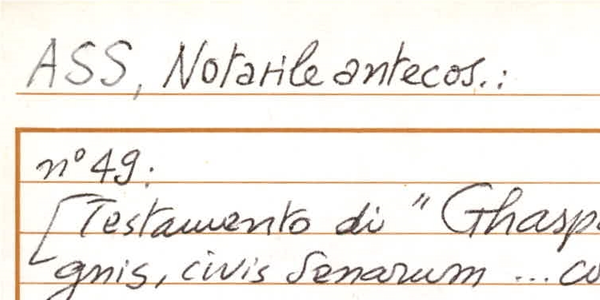 ASS, Notarile antecos.:
n° 49:
[Testamento di "Ghasp
gnis, civis Senarum ... c